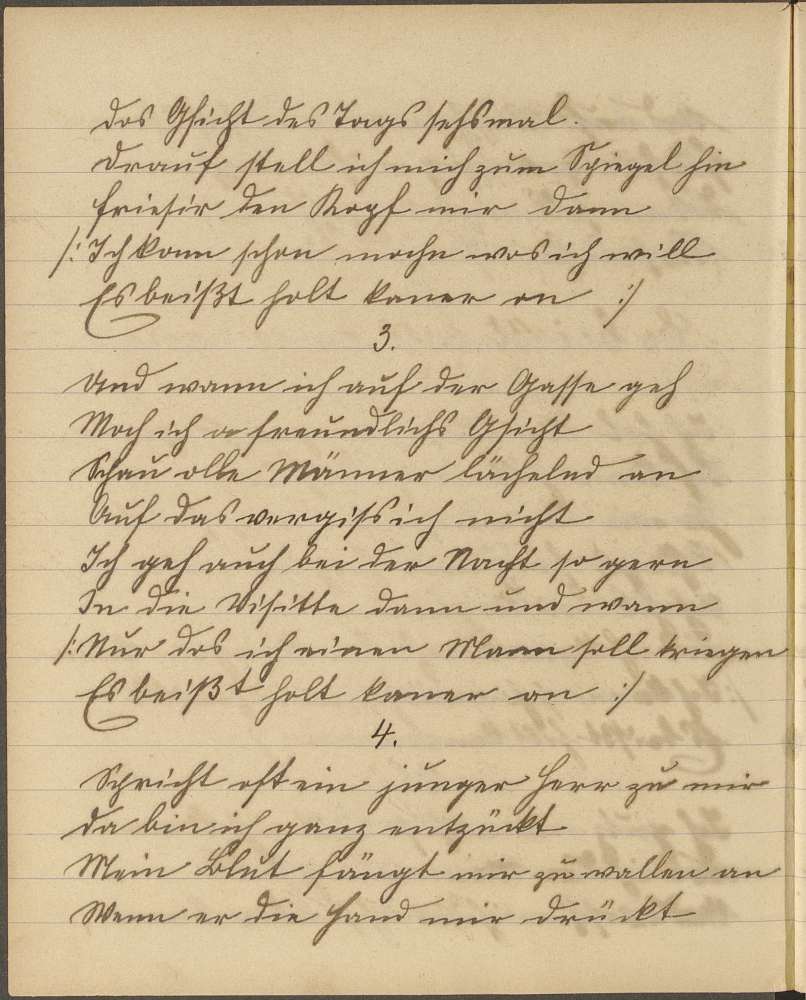 dos Gsicht des Tags sechsmal.
Drauf stell ich mich zum Spiegel hin
frisir den Kopf mir dann
/: Ich konn schon mochn wos ich will
Es beißt holt kaner on :/
3.
Und wann ich auf der Gasse geh
Moch ich a freundlichs Gsicht
Schau olle Männer lächelnd an
Auf das vergiss ich nicht
Ich geh auch bei der Nacht so gern
In die Visitte dann und wann
/: Nur dos ich einen Mann soll kriegen
Es beißt holt kaner on :/
4.
Spricht oft ein junger Herr zu mir
da bin ich ganz entzückt
Mein Blut fängt mir zu wallen an
Wenn er die Hand mir drückt